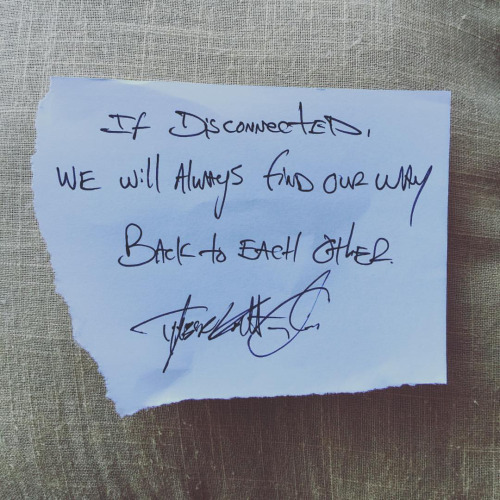 If Disconnected,
WE will Always find our way
Back to EACH other.
Tyler Knott